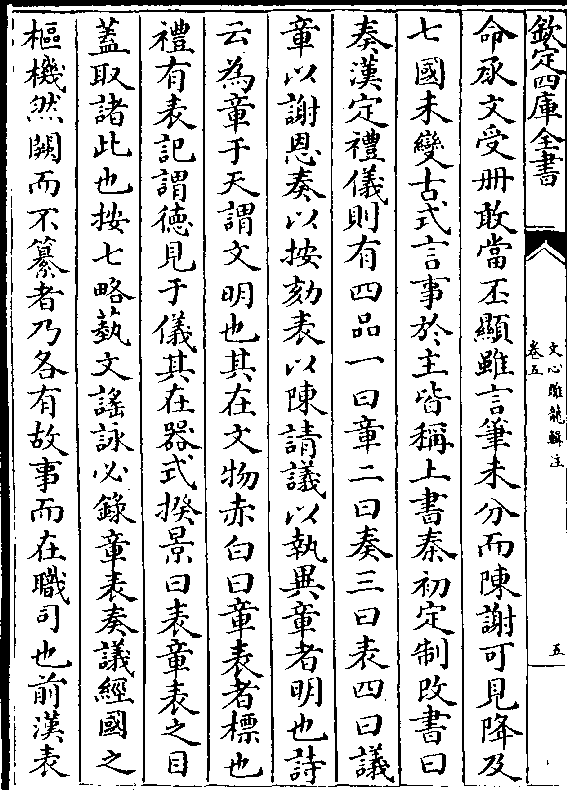 欽定四庫全書
文心雕龍輯注
卷五
五
命承文受冊敢當丕顯雖言筆未分而陳謝可見降及
七國未變古式言事於主皆稱上書秦初定制改書曰
奏漢定禮儀則有四品一曰章二曰奏三曰表四曰議
章以謝恩奏以按劾表以陳請議以執異章者明也詩
云為章于天謂文明也其在文物赤白曰章表者標也
禮有表記謂德見于儀其在器式揆景曰表章表之目
蓋取諸此也按七略藝文謠詠必錄章表奏議經國之
樞機然闕而不纂者乃各有故事而在職司也前漢表